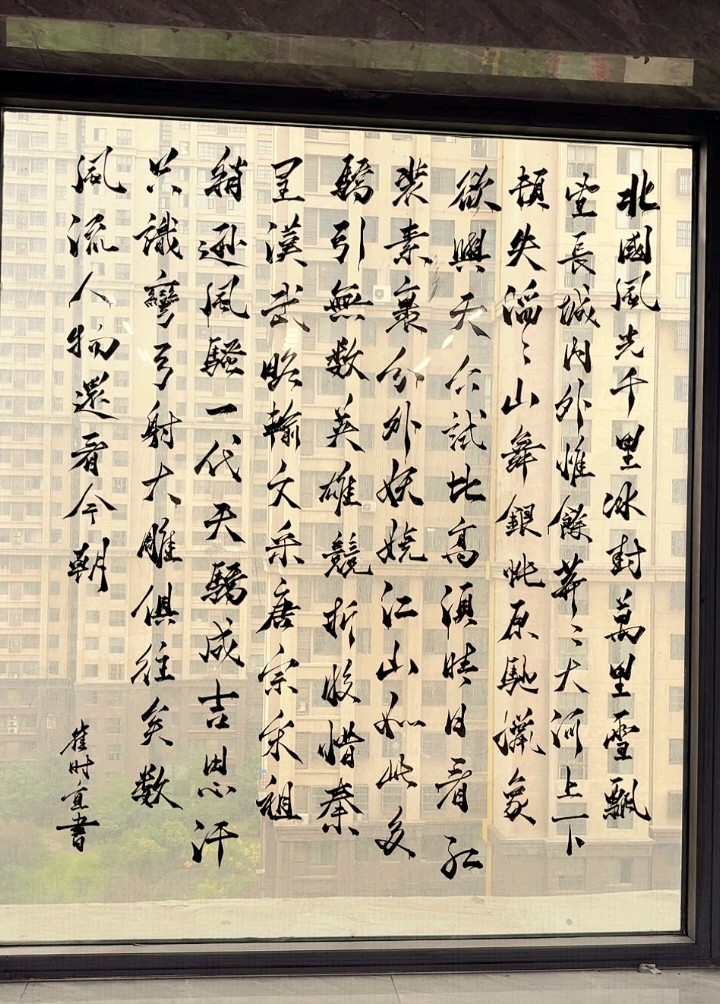 北國風光千里冰封萬里雪飄
望長城内外惟餘莽〻大河上下
頓失滔〻山舞銀蛇原馳蠟象
欲與天公試比高須晴日看紅
裝素裹分外妖嬈江山如此多
驕引無数英雄競折腰惜秦
皇漢武略輸文采唐宗宋祖
稍遜風騷一代天驕成吉思汗
只識彎弓射大雕俱往矣数
風流人物還看今朝
崔时宜書